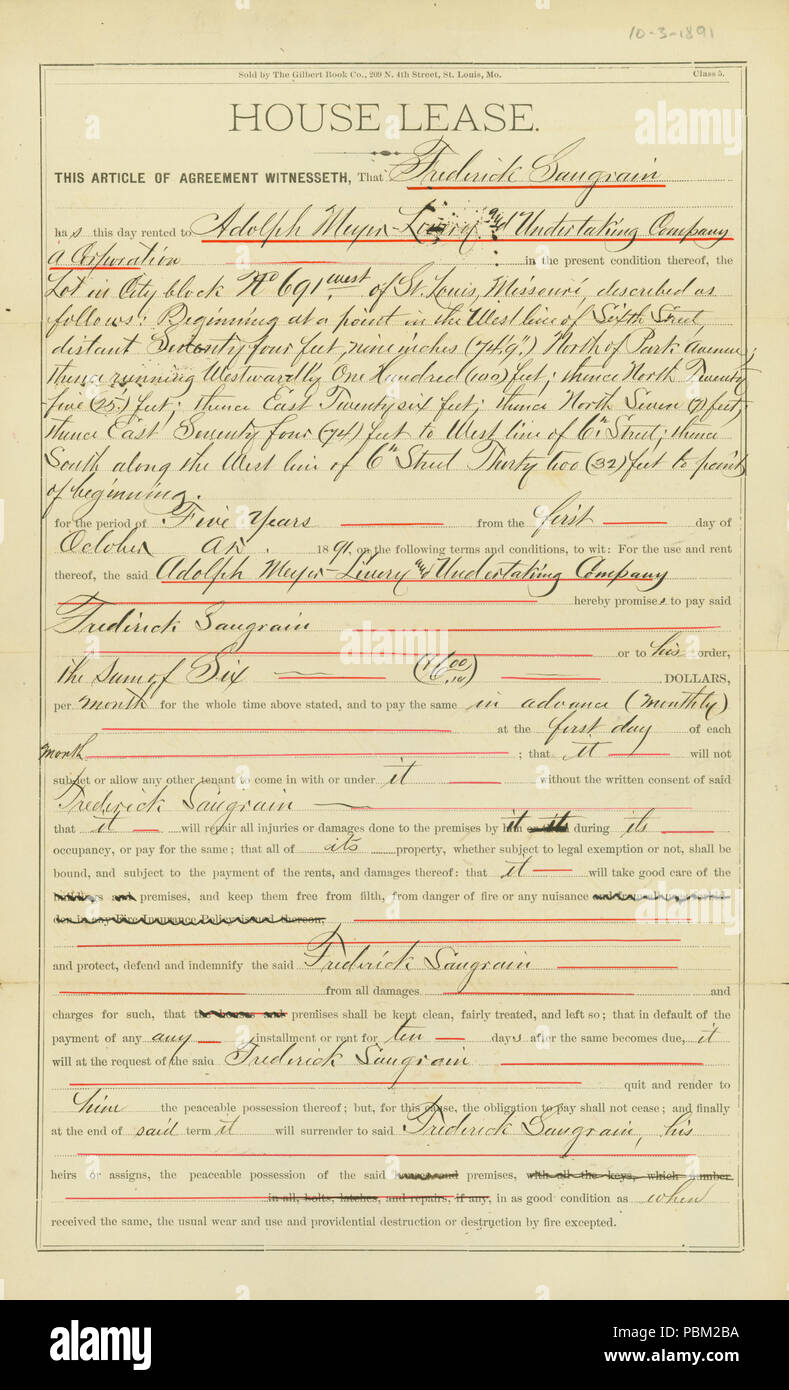 10-3-1891
Sold by The Gilbert Book Co., 209 N. 4th Street, St. Louis, Mo. Class 5.
HOUSE LEASE.
THIS ARTICLE OF AGREEMENT WITNESSETH, That Frederick Saugrain
has this day rented to Adolph Meyer Livery and Undertaking Company
a Corporation in the present condition thereof, the
Lot in City block No 691 west of St. Louis, Missouri, described as
follows: Beginning at a point in the West line of Sixth Street,
distant Seventy four feet, nine inches (74'9".) North of Park Avenue;
thence running Westwardly One Hundred (100) feet; thence North Twenty
five (25) feet; thence East Twenty six feet; thence North Seven (7) feet;
thence East Seventy four (74) feet to West line of 6th Street; thence
South along the West line of 6th Street Thirty two (32) feet to point
of beginning.
for the period of Five Years from the first day of
October A.D. 1891, on the following terms and conditions, to wit: For the use and rent
thereof, the said Adolph Meyer Livery and Undertaking Company
hereby promises to pay said
Frederick Saugrain
or to his order,
the sum of Six DOLLARS,
per month for the whole time above stated, and to pay the same in advance (monthly)
at the first day of each
month ; that it will not
subject or allow any other tenant to come in with or under it without the written consent of said
Frederick Saugrain
that it will repair all injuries or damages done to the premises by it during its
occupancy, or pay for the same; that all of its property, whether subject to legal exemption or not, shall be
bound, and subject to the payment of the rents, and damages thereof: that it will take good care of the
buildings and premises, and keep them free from filth, from danger of fire or any nuisance
den in any Fire Insurance Policy issued thereon,
and protect, defend and indemnify the said Frederick Saugrain
from all damages and
charges for such, that the houses and premises shall be kept clean, fairly treated, and left so; that in default of the
payment of any any installment or rent for ten days after the same becomes due, it
will at the request of the said Frederick Saugrain
quit and render to
him the peaceable possession thereof; but, for this cause, the obligation to pay shall not cease; and finally
at the end of said term it will surrender to said Frederick Saugrain, his
heirs or assigns, the peaceable possession of the said house and premises, with all the keys, which number
in all, bolts, latches, and repairs, if any, in as good condition as when
received the same, the usual wear and use and providential destruction or destruction by fire excepted.
alamy
alamy
Image ID: PBM2BA
www.alamy.com